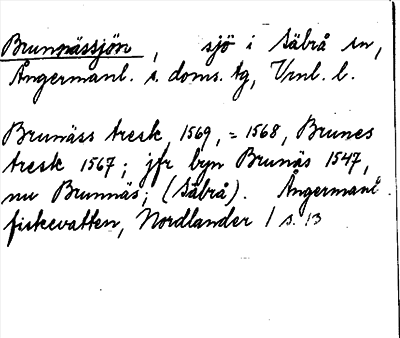 Brunnässjön, sjö i Säbrå sn,
Ångermanl. s. doms. tg, Vnl. l.
Brunäss tresk 1569, = 1568, Brunes
tresk 1567; jfr byn Brunäs 1547,
nu Brunnäs; (Säbrå). Ångermanl.
fiskevatten, Nordlander 1 s. 13